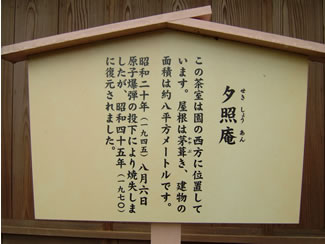 せきしょうあん
夕照庵
この茶室は園の西方に位置して
います。屋根は茅葺き、建物の
面積は約八平方メートルです。
昭和二十年(一九四五)八月六日
原子爆弾の投下により焼失しま
したが、昭和四十五年(一九七〇)
に復元されました。